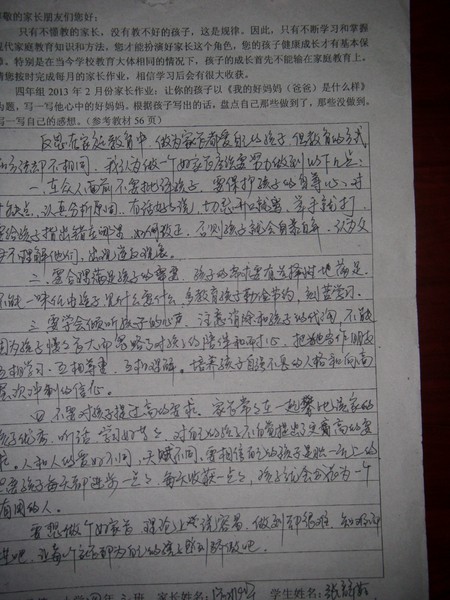 敬的家长朋友们您好：
只有不懂教的家长，没有教不好的孩子，这是规律。因此，只有不断学习和掌握
现代家庭教育知识和方法，您才能扮演好家长这个角色，您的孩子健康成长才有基本保
障。特别是在当今学校教育大体相同的情况下，孩子的成长首先不能输在家庭教育上，
请您按时完成每月的家长作业，相信学习后会有很大收获。
四年组 2013 年 2 月份家长作业：让你的孩子以《我的好妈妈（爸爸）是什么样》
为题，写一写他心中的好妈妈，根据孩子写出的话，盘点自己那些做到了，那些没做到，
写一写自己的感想。（参考教材 56 页）
反思在家庭教育中，做为家长都爱自己的孩子，但教育的方式
和方法却不相同，我认为做一个好家长应该要努力做到如下几点：
一、在众人面前不要批评孩子，要保护孩子的自尊心，对
缺点，认真分析原因，有话好好说，切忌开口就骂，举手就打，
要给孩子指出错在哪里，如何改正，否则孩子就会自暴自弃，认为父
不理解他们，出现逆反现象。
二、要合理满足孩子的需要，孩子的需求要有选择时地满足，
不能一味任由孩子要什么买什么，多教育孩子勤俭节约，刻苦学习。
三、要学会倾听孩子的心声，注意消除和孩子的代沟，不能
因为孩子慢慢长大而忽略了对孩子的陪伴和耐心，把她当作朋友
互相学习、互相尊重、互相理解。培养孩子自强不息的人格和向高
层次冲刺的信心。
四、不要对孩子提过高的要求。家长常常在一起攀比谁家的
孩子优秀、听话、学习好等等，对自己的孩子不自觉提出了更高的要
求。人和人的爱好不同，天赋不同，要相信自己的孩子是独一无二的
要孩子每天都进步一点点，每天收获一点点，孩子就会成为一个
有用的人。
要想做个好家长，理论上说容易，做到却很难，
吧，让每个家长都为自己的孩子做到
班 家长姓名： 学生姓名：